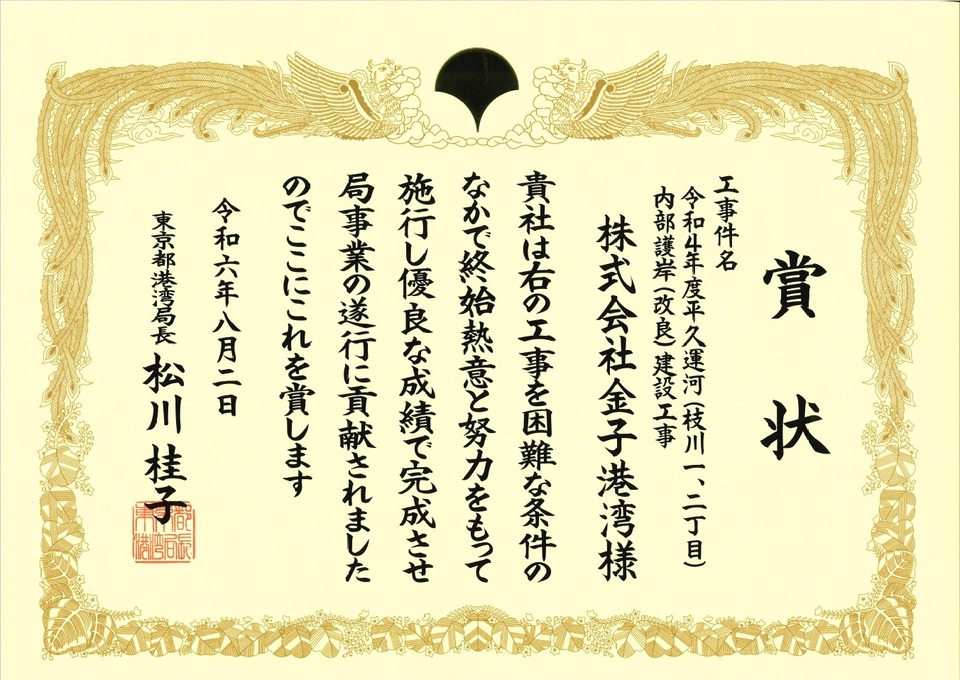 賞状
工事件名
令和4年度平久運河(枝川一、二丁目)
内部護岸(改良)建設工事
株式会社 金子港湾様
貴社は右の工事を困難な条件の
なかで終始熱意と努力をもって
施行し優良な成績で完成させ
局事業の遂行に貢献されました
のでここにこれを賞します
令和六年八月二日
東京都港湾局長 松川桂子
東京都
港湾局長